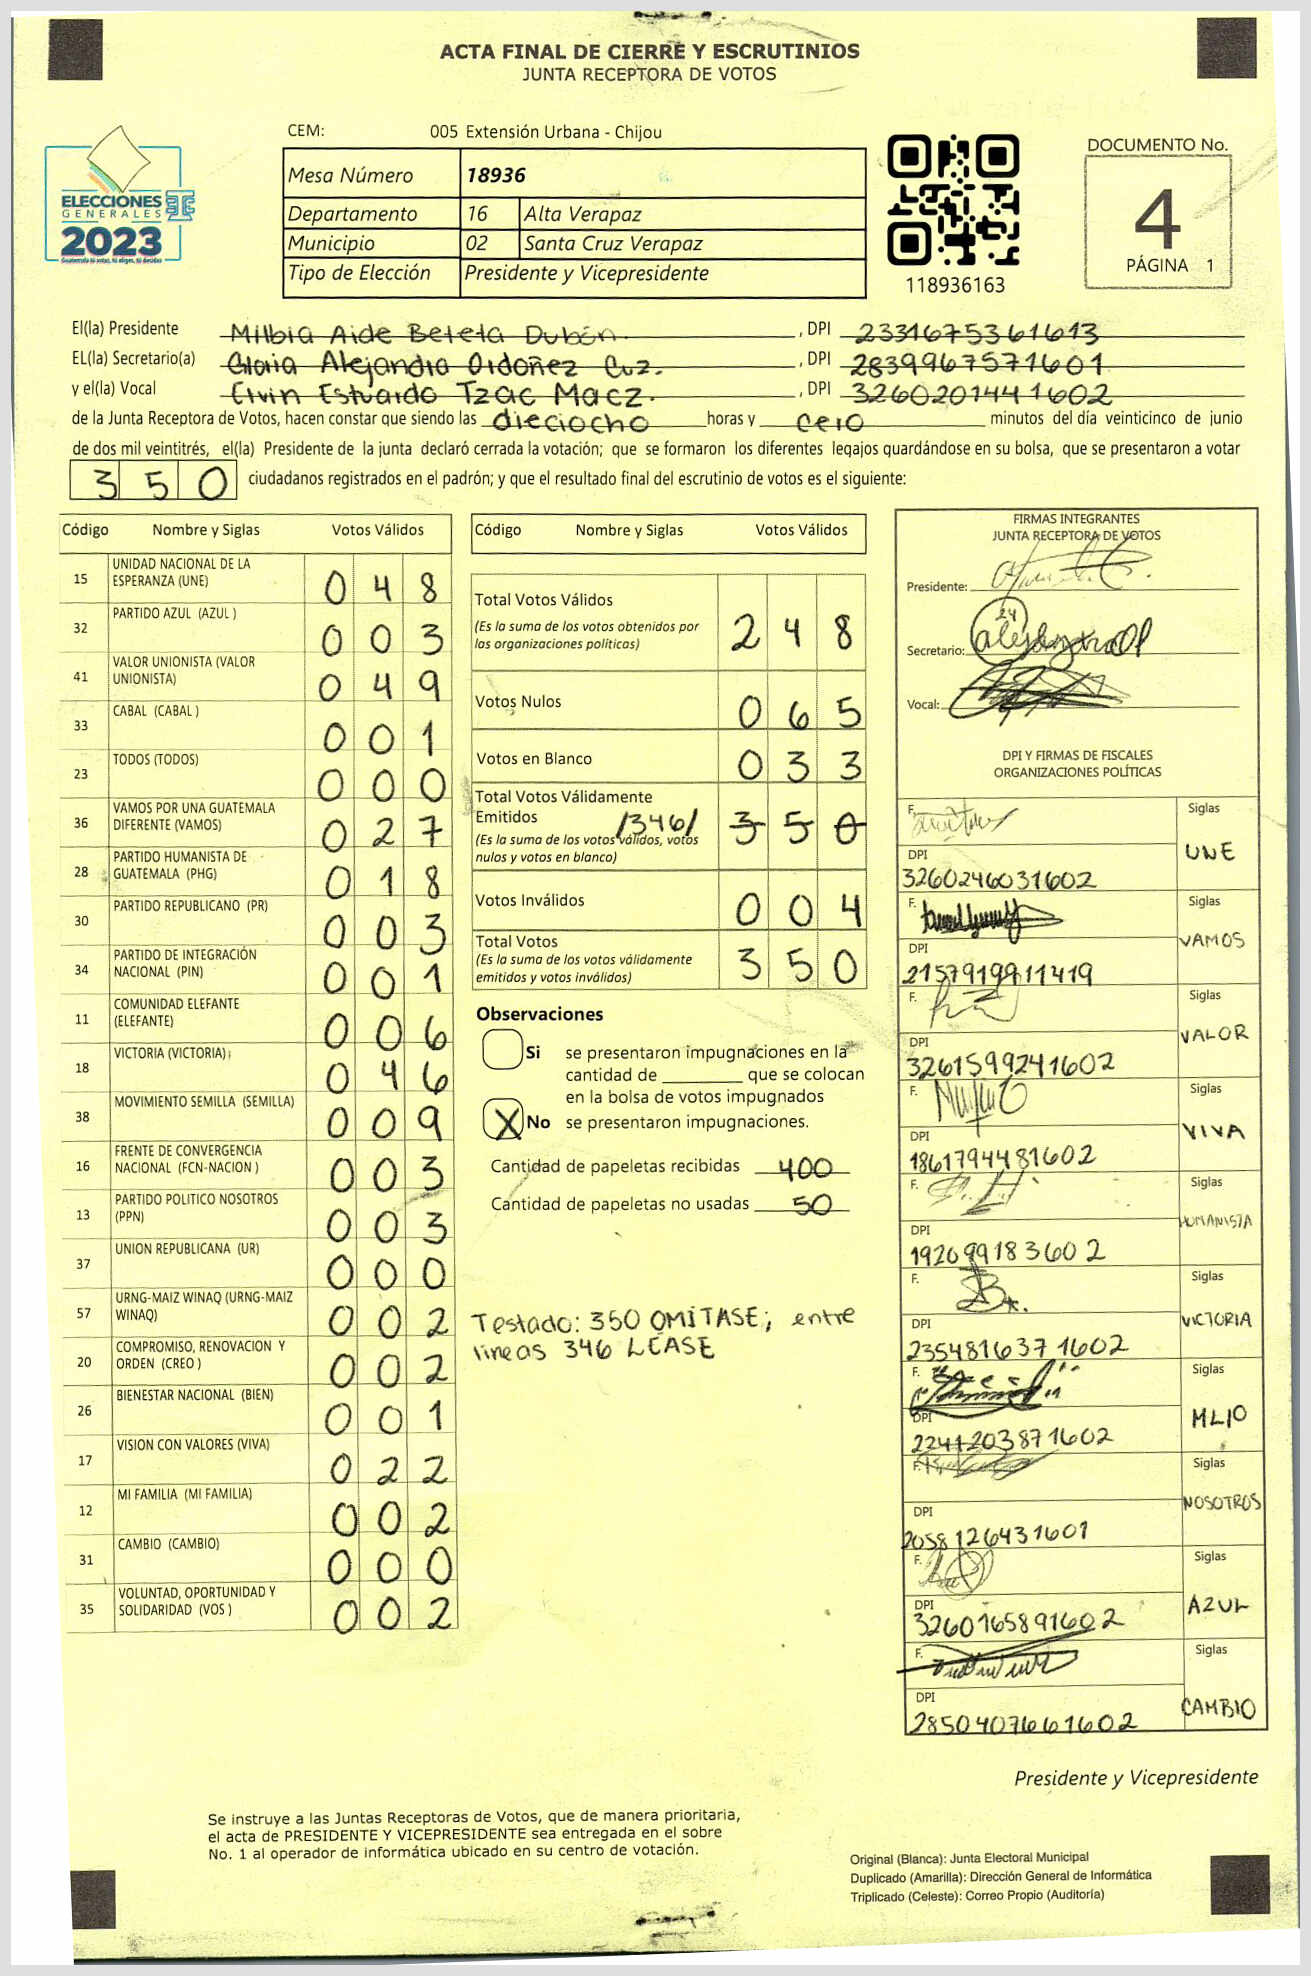 ACTA FINAL DE CIERRE Y ESCRUTINIOS
JUNTA RECEPTORA DE VOTOS
CEM: 005 Extensión Urbana - Chijou
Mesa Número 18936
Departamento 16 Alta Verapaz
Municipio 02 Santa Cruz Verapaz
Tipo de Elección Presidente y Vicepresidente
ELECCIONES
GENERALES
2023
118936163
DOCUMENTO No.
4
PÁGINA 1
El(la) Presidente Milbia Aide Beteta Dubón. , DPI 2331675361613
EL(la) Secretario(a) Gloria Alejandra Ordoñez Cuz. , DPI 2839967571601
y el(la) Vocal Ervin Estuardo Tzac Macz. , DPI 3260201441602
de la Junta Receptora de Votos, hacen constar que siendo las dieciocho horas y cero minutos del día veinticinco de junio
de dos mil veintitrés, el(la) Presidente de la junta declaró cerrada la votación; que se formaron los diferentes legajos guardándose en su bolsa, que se presentaron a votar
350 ciudadanos registrados en el padrón; y que el resultado final del escrutinio de votos es el siguiente:
Código Nombre y Siglas Votos Válidos
15 UNIDAD NACIONAL DE LA
ESPERANZA (UNE) 0 4 8
32 PARTIDO AZUL (AZUL ) 0 0 3
41 VALOR UNIONISTA (VALOR
UNIONISTA) 0 4 9
33 CABAL (CABAL ) 0 0 1
23 TODOS (TODOS) 0 0 0
36 VAMOS POR UNA GUATEMALA
DIFERENTE (VAMOS) 0 2 7
28 PARTIDO HUMANISTA DE
GUATEMALA (PHG) 0 1 8
30 PARTIDO REPUBLICANO (PR) 0 0 3
34 PARTIDO DE INTEGRACIÓN
NACIONAL (PIN) 0 0 1
11 COMUNIDAD ELEFANTE
(ELEFANTE) 0 0 6
18 VICTORIA (VICTORIA) 0 4 6
38 MOVIMIENTO SEMILLA (SEMILLA) 0 0 9
16 FRENTE DE CONVERGENCIA
NACIONAL (FCN-NACION ) 0 0 3
13 PARTIDO POLITICO NOSOTROS
(PPN) 0 0 3
37 UNION REPUBLICANA (UR) 0 0 0
57 URNG-MAIZ WINAQ (URNG-MAIZ
WINAQ) 0 0 2
20 COMPROMISO, RENOVACION Y
ORDEN (CREO ) 0 0 2
26 BIENESTAR NACIONAL (BIEN) 0 0 1
17 VISION CON VALORES (VIVA) 0 2 2
12 MI FAMILIA (MI FAMILIA) 0 0 2
31 CAMBIO (CAMBIO) 0 0 0
35 VOLUNTAD, OPORTUNIDAD Y
SOLIDARIDAD (VOS ) 0 0 2
Código Nombre y Siglas Votos Válidos
Total Votos Válidos
(Es la suma de los votos obtenidos por
las organizaciones políticas) 2 4 8
Votos Nulos 0 6 5
Votos en Blanco 0 3 3
Total Votos Válidamente
Emitidos /346/ 3 5 0
(Es la suma de los votos válidos, votos
nulos y votos en blanco)
Votos Inválidos 0 0 4
Total Votos
(Es la suma de los votos válidamente
emitidos y votos inválidos) 3 5 0
Observaciones
Si se presentaron impugnaciones en la
cantidad de ________ que se colocan
en la bolsa de votos impugnados
X No se presentaron impugnaciones.
Cantidad de papeletas recibidas 400
Cantidad de papeletas no usadas 50
Testado: 350 OMITASE; entre
lineas 346 LEASE
FIRMAS INTEGRANTES
JUNTA RECEPTORA DE VOTOS
Presidente:
Secretario:
Vocal:
DPI Y FIRMAS DE FISCALES
ORGANIZACIONES POLÍTICAS
F. Siglas
DPI UNE
3260246031602
F. Siglas
DPI VAMOS
2157919911419
F. Siglas
DPI VALOR
3261599241602
F. Siglas
DPI VIVA
1861794481602
F. Siglas
DPI HUMANISTA
192099183602
F. Siglas
DPI VICTORIA
2354816371602
F. Siglas
DPI MLIO
2241203871602
F. Siglas
DPI NOSOTROS
2058126431601
F. Siglas
DPI AZUL
3260165891602
F. Siglas
DPI CAMBIO
2850407661602
Presidente y Vicepresidente
Se instruye a las Juntas Receptoras de Votos, que de manera prioritaria,
el acta de PRESIDENTE Y VICEPRESIDENTE sea entregada en el sobre
No. 1 al operador de informática ubicado en su centro de votación.
Original (Blanca): Junta Electoral Municipal
Duplicado (Amarilla): Dirección General de Informática
Triplicado (Celeste): Correo Propio (Auditoría)